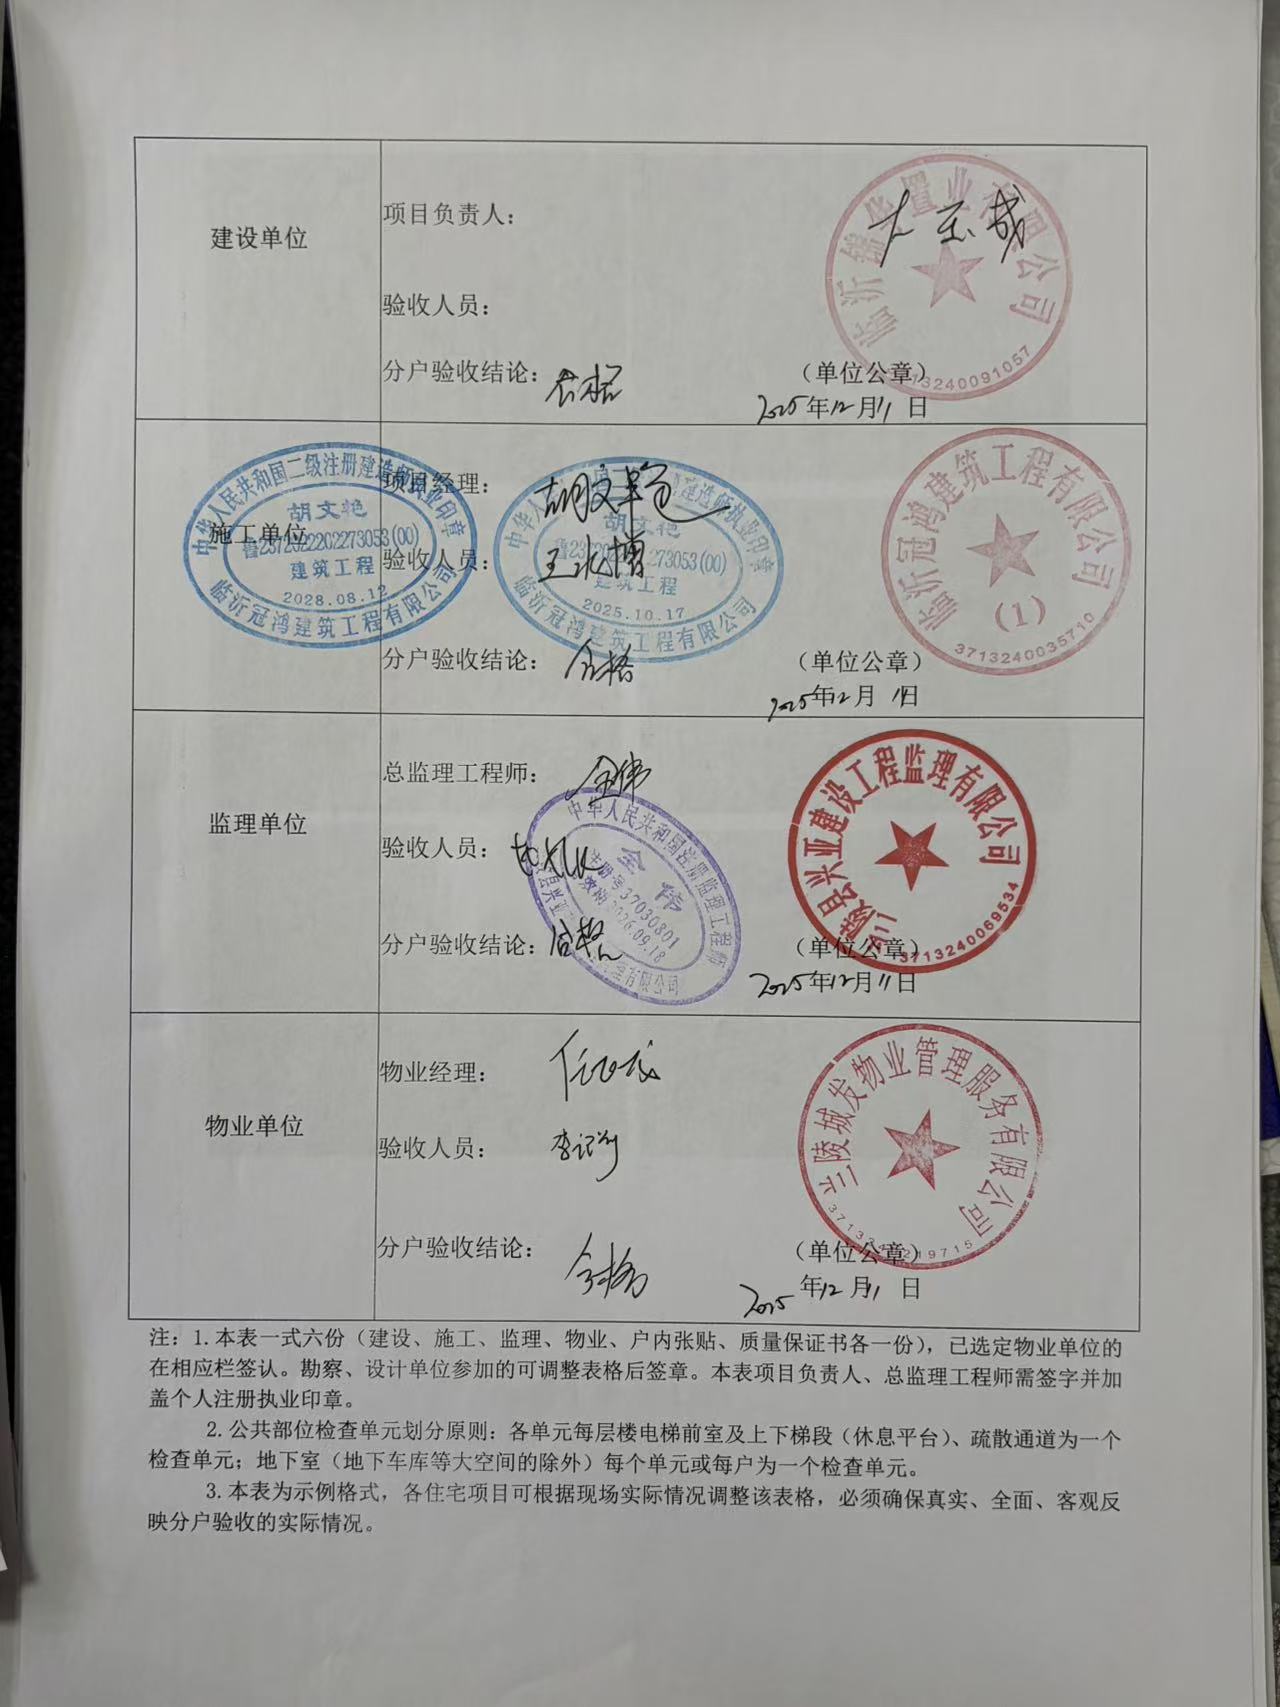 建设单位
项目负责人：
验收人员：
分户验收结论：合格
（单位公章）
2025年12月11日
临沂锦华置业有限公司
13240091057
施工单位
项目经理：胡文艳
验收人员：王兆博
分户验收结论：合格
（单位公章）
2025年12月11日
中华人民共和国二级注册建造师执业印章
胡文艳
鲁2372322202273053(00)
建筑工程
2028.08.12
临沂冠鸿建筑工程有限公司
胡文艳
273053(00)
建筑工程
2025.10.17
临沂冠鸿建筑工程有限公司
临沂冠鸿建筑工程有限公司
(1)
3713240035710
监理单位
总监理工程师：全伟
验收人员：
分户验收结论：合格
（单位公章）
2025年12月11日
中华人民共和国注册监理工程师
全伟
注册号37030801
有效期2026.09.18
陵县兴亚建设工程监理有限公司
3713240069534
物业单位
物业经理：
验收人员：
分户验收结论：合格
（单位公章）
2025年12月11日
兰陵城发物业管理服务有限公司
注：1.本表一式六份（建设、施工、监理、物业、户内张贴、质量保证书各一份），已选定物业单位的
在相应栏签认。勘察、设计单位参加的可调整表格后签章。本表项目负责人、总监理工程师需签字并加
盖个人注册执业印章。
2.公共部位检查单元划分原则：各单元每层楼电梯前室及上下梯段（休息平台）、疏散通道为一个
检查单元；地下室（地下车库等大空间的除外）每个单元或每户为一个检查单元。
3.本表为示例格式，各住宅项目可根据现场实际情况调整该表格，必须确保真实、全面、客观反
映分户验收的实际情况。